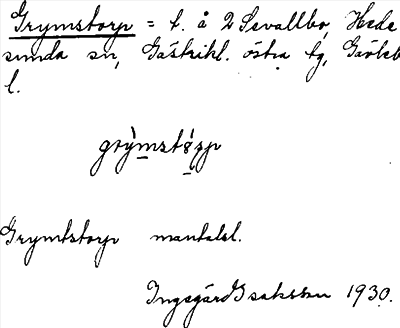 Grymstorp = t. å 2 Sevallbo, Hede
sunda sn, Gästrikl. östra tg, Gävleb
l.
grỳmstå̀rp
Grymtstorp mantalsl.
Ingegärd Isaksson 1930.